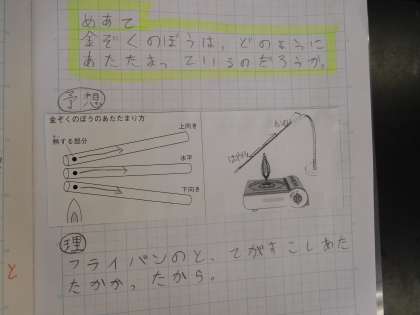 めあて
金ぞくのぼうは、どのように
あたたまっているのだろうか。
予想
金ぞくのぼうのあたたまり方
上向き
熱する部分
水平
下向き
はやい
理
フライパンのと、てがすこしあた
たかか、たから。